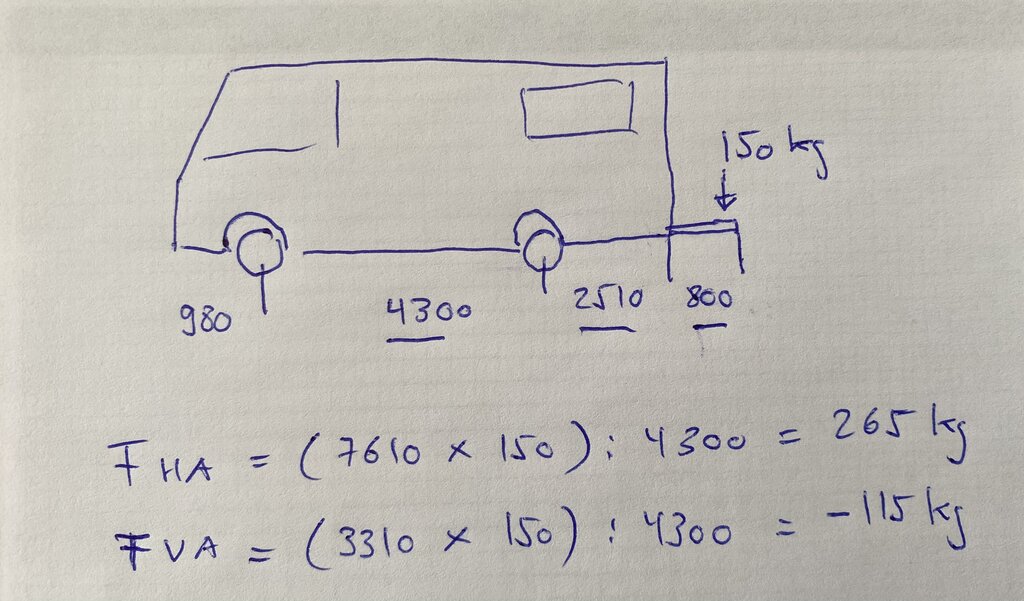 150 kg
980 4300 2510 800
F HA = (7610 x 150) : 4300 = 265 kg
F VA = (3310 x 150) : 4300 = -115 kg